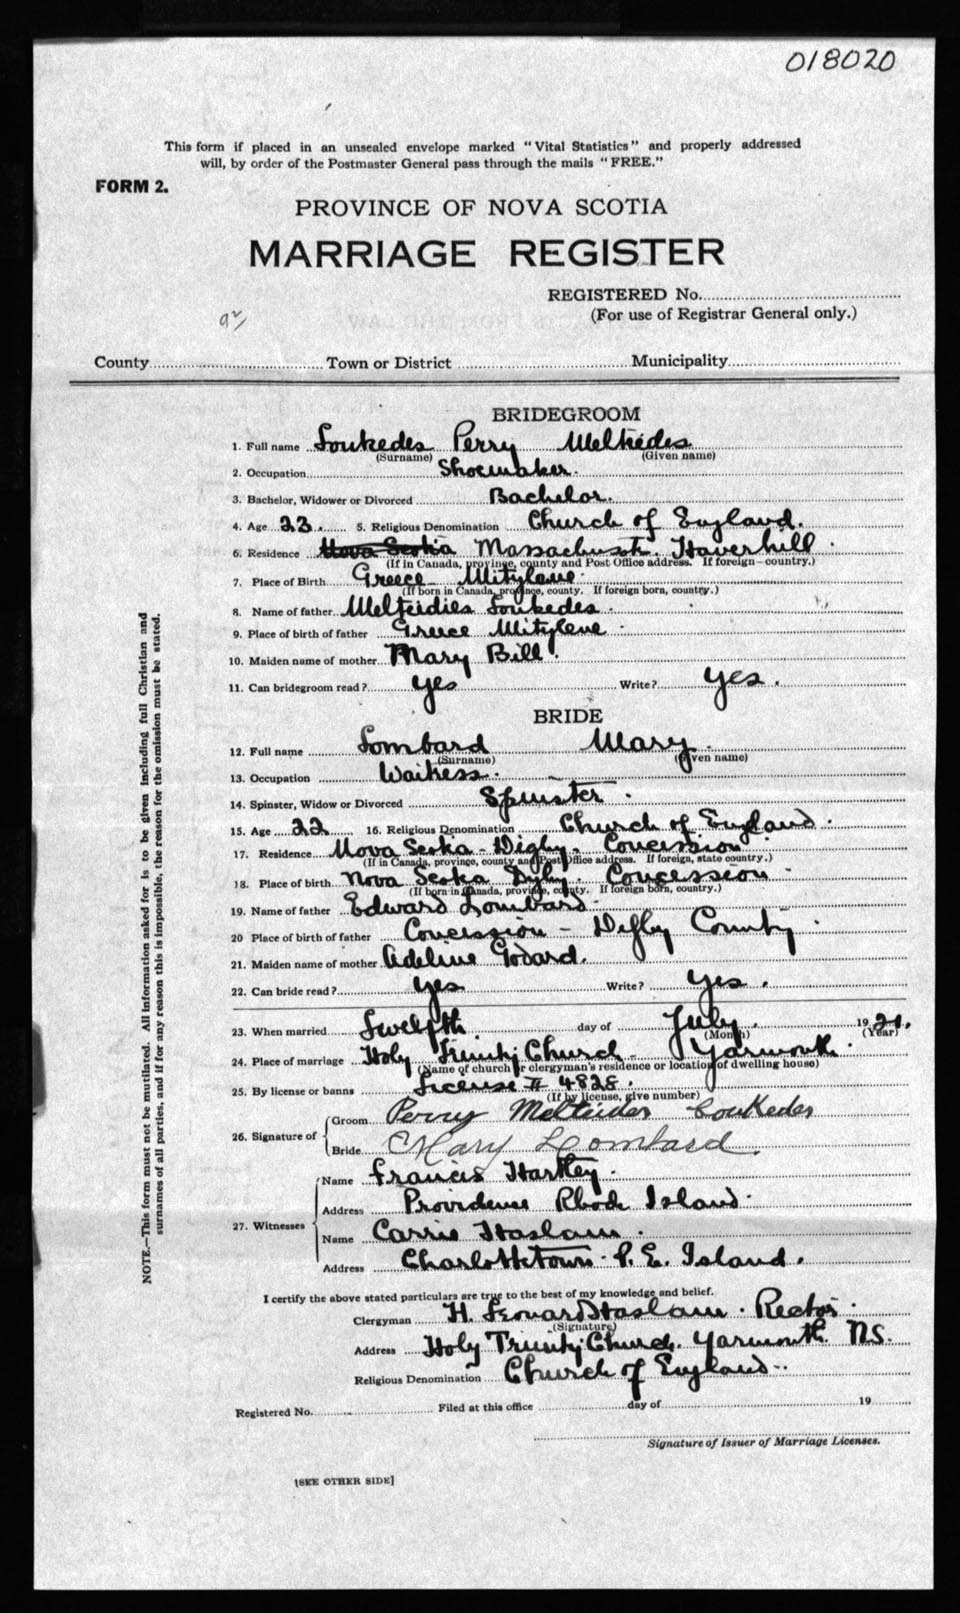 018020
This form if placed in an unsealed envelope marked "Vital Statistics" and properly addressed
will, by order of the Postmaster General pass through the mails "FREE."
FORM 2.
PROVINCE OF NOVA SCOTIA
MARRIAGE REGISTER
REGISTERED No.
(For use of Registrar General only.)
County Town or District Municipality
BRIDEGROOM
1. Full name Loukedes Perry Meltiedes
(Surname) (Given name)
2. Occupation Shoemaker.
3. Bachelor, Widower or Divorced Bachelor.
4. Age 23. 5. Religious Denomination Church of England.
6. Residence Nova Scotia Massachusetts. Haverhill.
(If in Canada, province, county and Post Office address. If foreign—country.)
7. Place of Birth Greece Mitylene.
(If born in Canada, province, county. If foreign born, country.)
8. Name of father Melteidies Loukedes.
9. Place of birth of father Greece Mitylene.
10. Maiden name of mother Mary Bill.
11. Can bridegroom read? yes Write? yes.
BRIDE
12. Full name Lombard Mary.
(Surname) (Given name)
13. Occupation Waitress.
14. Spinster, Widow or Divorced Spinster.
15. Age 22 16. Religious Denomination Church of England.
17. Residence Nova Scotia - Digby. Concession
(If in Canada, province, county and Post Office address. If foreign, state country.)
18. Place of birth Nova Scotia Digby. Concession.
(If born in Canada, province, county. If foreign born, country.)
19. Name of father Edward Lombard.
20 Place of birth of father Concession - Digby County.
21. Maiden name of mother Adeline Godard.
22. Can bride read? yes Write? yes.
23. When married Twelfth day of July. 1921.
(Month) (Year)
24. Place of marriage Holy Trinity Church. Yarmouth.
(Name of church or clergyman's residence or location of dwelling house)
25. By license or banns License # 4828.
(If by license, give number)
26. Signature of Groom Perry Meltiedes Loukedes
Bride Mary Lombard.
27. Witnesses Name Francis Hartley.
Address Providence Rhode Island.
Name Carrie Haslam.
Address Charlottetown. P. E. Island.
I certify the above stated particulars are true to the best of my knowledge and belief.
Clergyman H. Leonard Haslam. Rector.
(Signature)
Address Holy Trinity Church. Yarmouth. N.S.
Religious Denomination Church of England.
Registered No. Filed at this office day of 19
Signature of Issuer of Marriage Licenses.
[SEE OTHER SIDE]
NOTE.—This form must not be mutilated. All information asked for is to be given including full Christian and
surnames of all parties, and if for any reason this is impossible, the reason for the omission must be stated.